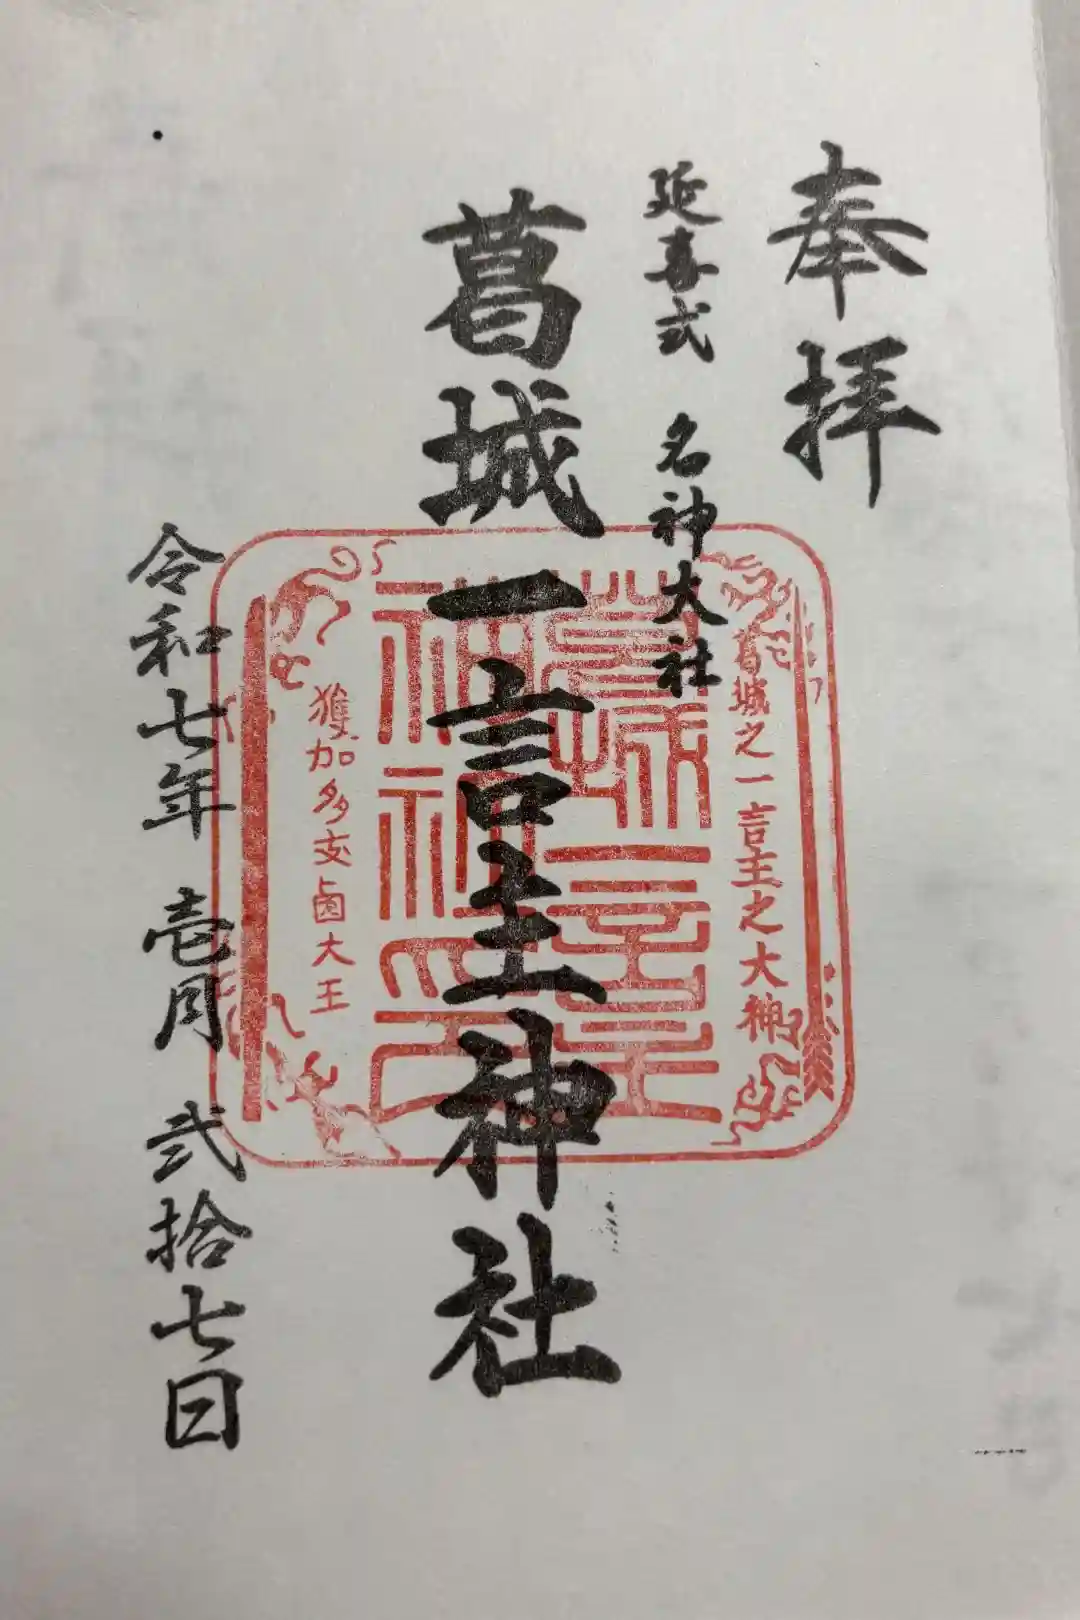 奉拝
延喜式 名神大社
葛城一言主神社
葛城之一言主之大神
葛城一言主
神社之印
獲加多支鹵大王
令和七年 壱月 弐拾七日